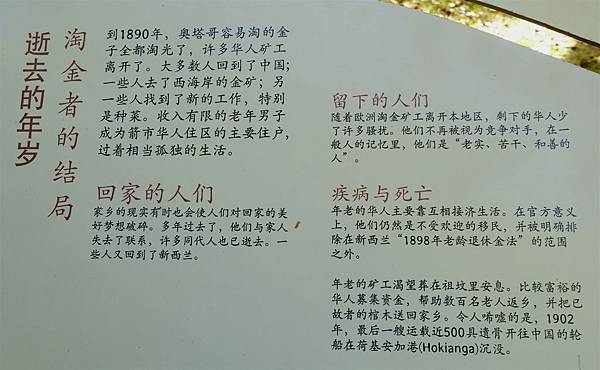 淘金者的结局
逝去的年岁
到1890年，奥塔哥容易淘的金
子全都淘光了，许多华人矿工
离开了。大多数人回到了中国；
一些人去了西海岸的金矿；另
一些人找到了新的工作，特别
是种菜。收入有限的老年男子
成为箭市华人住区的主要住户，
过着相当孤独的生活。
回家的人们
家乡的现实有时也会使人们对回家的美
好梦想破碎。多年过去了，他们与家人
失去了联系，许多同代人也已逝去。一
些人又回到了新西兰。
留下的人们
随着欧洲淘金矿工离开本地区，剩下的华人少
了许多骚扰。他们不再被视为竞争对手，在一
般人的记忆里，他们是“老实、苦干、和善的
人”。
疾病与死亡
年老的华人主要靠互相接济生活。在官方意义
上，他们仍然是不受欢迎的移民，并被明确排
除在新西兰“1898年老龄退休金法”的范围
之外。
年老的矿工渴望葬在祖坟里安息。比较富裕的
华人募集资金，帮助数百名老人返乡，并把已
故者的棺木送回家乡。令人唏嘘的是，1902
年，最后一艘运载近500具遗骨开往中国的轮
船在荷基安加港(Hokianga)沉没。